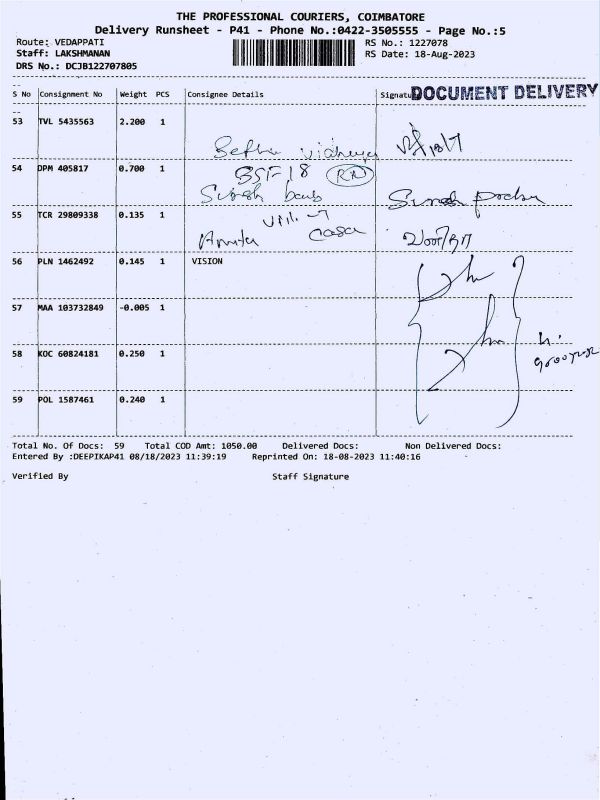 THE PROFESSIONAL COURIERS, COIMBATORE
Delivery Runsheet - P41 - Phone No.:0422-3505555 - Page No.:5
Route: VEDAPPATI RS No.: 1227078
Staff: LAKSHMANAN RS Date: 18-Aug-2023
DRS No.: DCJB122707805
S No Consignment No Weight PCS Consignee Details Signatu
DOCUMENT DELIVERY
53 TVL 5435563 2.200 1
54 DPM 405817 0.700 1
Suresh babu
55 TCR 29809338 0.135 1
56 PLN 1462492 0.145 1 VISION
57 MAA 103732849 -0.005 1
58 KOC 60824181 0.250 1
59 POL 1587461 0.240 1
Total No. Of Docs: 59 Total COD Amt: 1050.00 Delivered Docs: Non Delivered Docs:
Entered By :DEEPIKAP41 08/18/2023 11:39:19 Reprinted On: 18-08-2023 11:40:16
Verified By Staff Signature